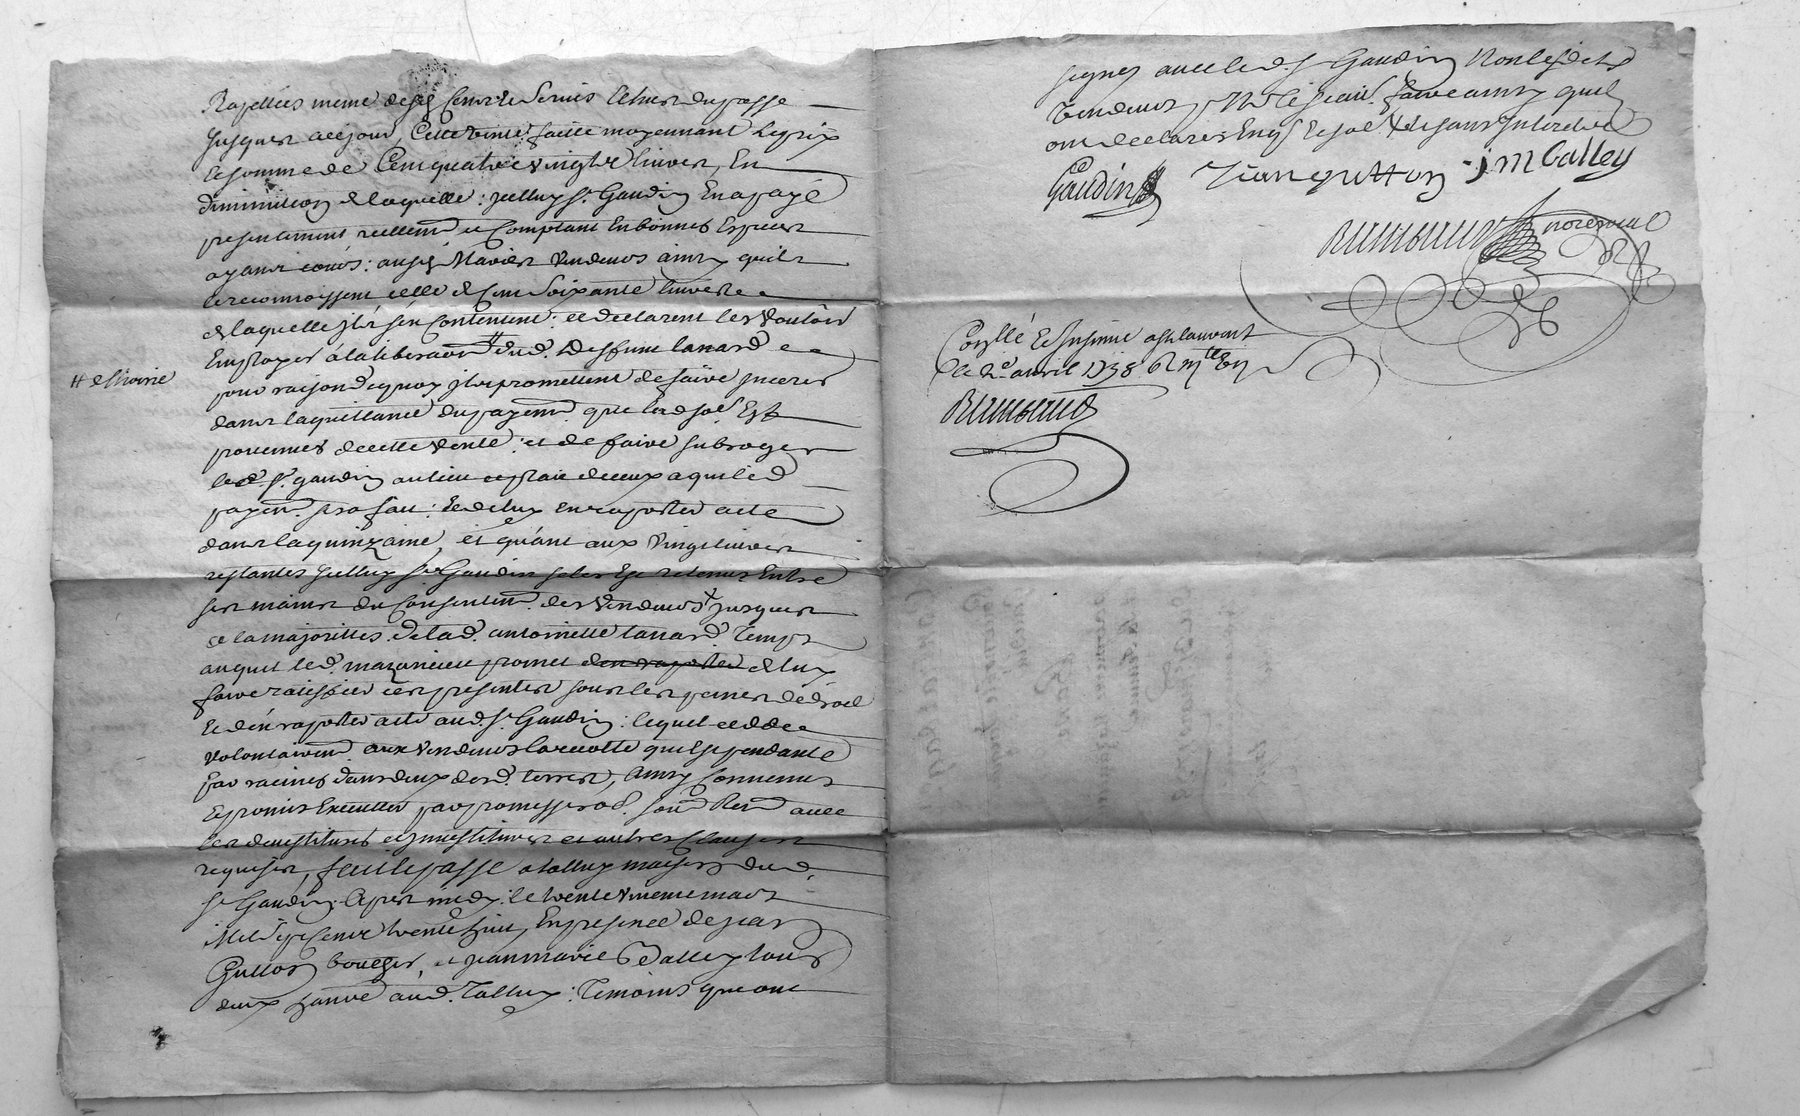 Rapellées meme desd. Cens & Servis Echus du passé
jusques a ce jour, Cette vente faitte moyennant Le prix
et somme de Cent quatre vingts Livres, En
diminution de laquelle : jcelluy Sr. Gaudin En a payé
presentement reellemt. et Comptant En bonnes Especes
ayant cours : ausd. Mariés vendeurs ainsy quils
le reconnoissent celle de Cent Soixante Livres
de laquelle jls sen Contentent : et declarent les vouloir
Employer à la liberaon. # dud. deffunt Lanard
# de l'hoirie
pour raison de quoy jls promettent de faire jnserer
dans la quittance du payemt. que lad. so
provenues de cette vente : et de faire subroger
led. Sr. gaudin au lieu et place de ceux a qui led.
payemt. sera fait : Et de luy En raporter acte
dans la quinzaine, et quánt aux vingt livres
restantes jcelluy Sr. Gaudin se les Est retenues Entre
ses mains du Consentemt. des vendeurs jusques
a la majorittée de lad. antoinette Lanard Temps
auquel led. mazoncieu promet den raporter de luy
faire ratiffier ces presentes sous les peines de droit
Et d'en raporter acte aud. Sr. Gaudin : lequel cedde
volontairemt. aux vendeurs la recolte qui Est pendante
par racines dans deux desd. terres, Ainsy Convenus
Et promis Executter par promesses obl. soum. Ren. avec
les devestitures et jnvestitures et autres Clauses
requises, fait et passé a talluy maison dud.
Sr. Gaudin, Apres midy : le trente uneme mars
Mil sept Cents trente huit, En presence de jean
Gutton boulger, et jean marie Balley tous
deux habité. aud. Talluy : Temoins qui ont
signés avec led. Sr. Gaudin Non lesdits
vendeurs pour ne le scavoir faire ainsy quils
ont declarés Enquis Et so
Gaudin Jean gutton j m balley
not. royal
Conllé Et Insinué a St. laurent
le 2e. avril 1738